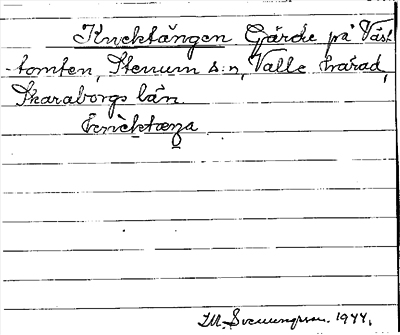 Knektängen Gärde på Väst
-tomten, Stenum s:n, Valle härad,
Skaraborgs län.
I.M. Svenungsson. 1944.